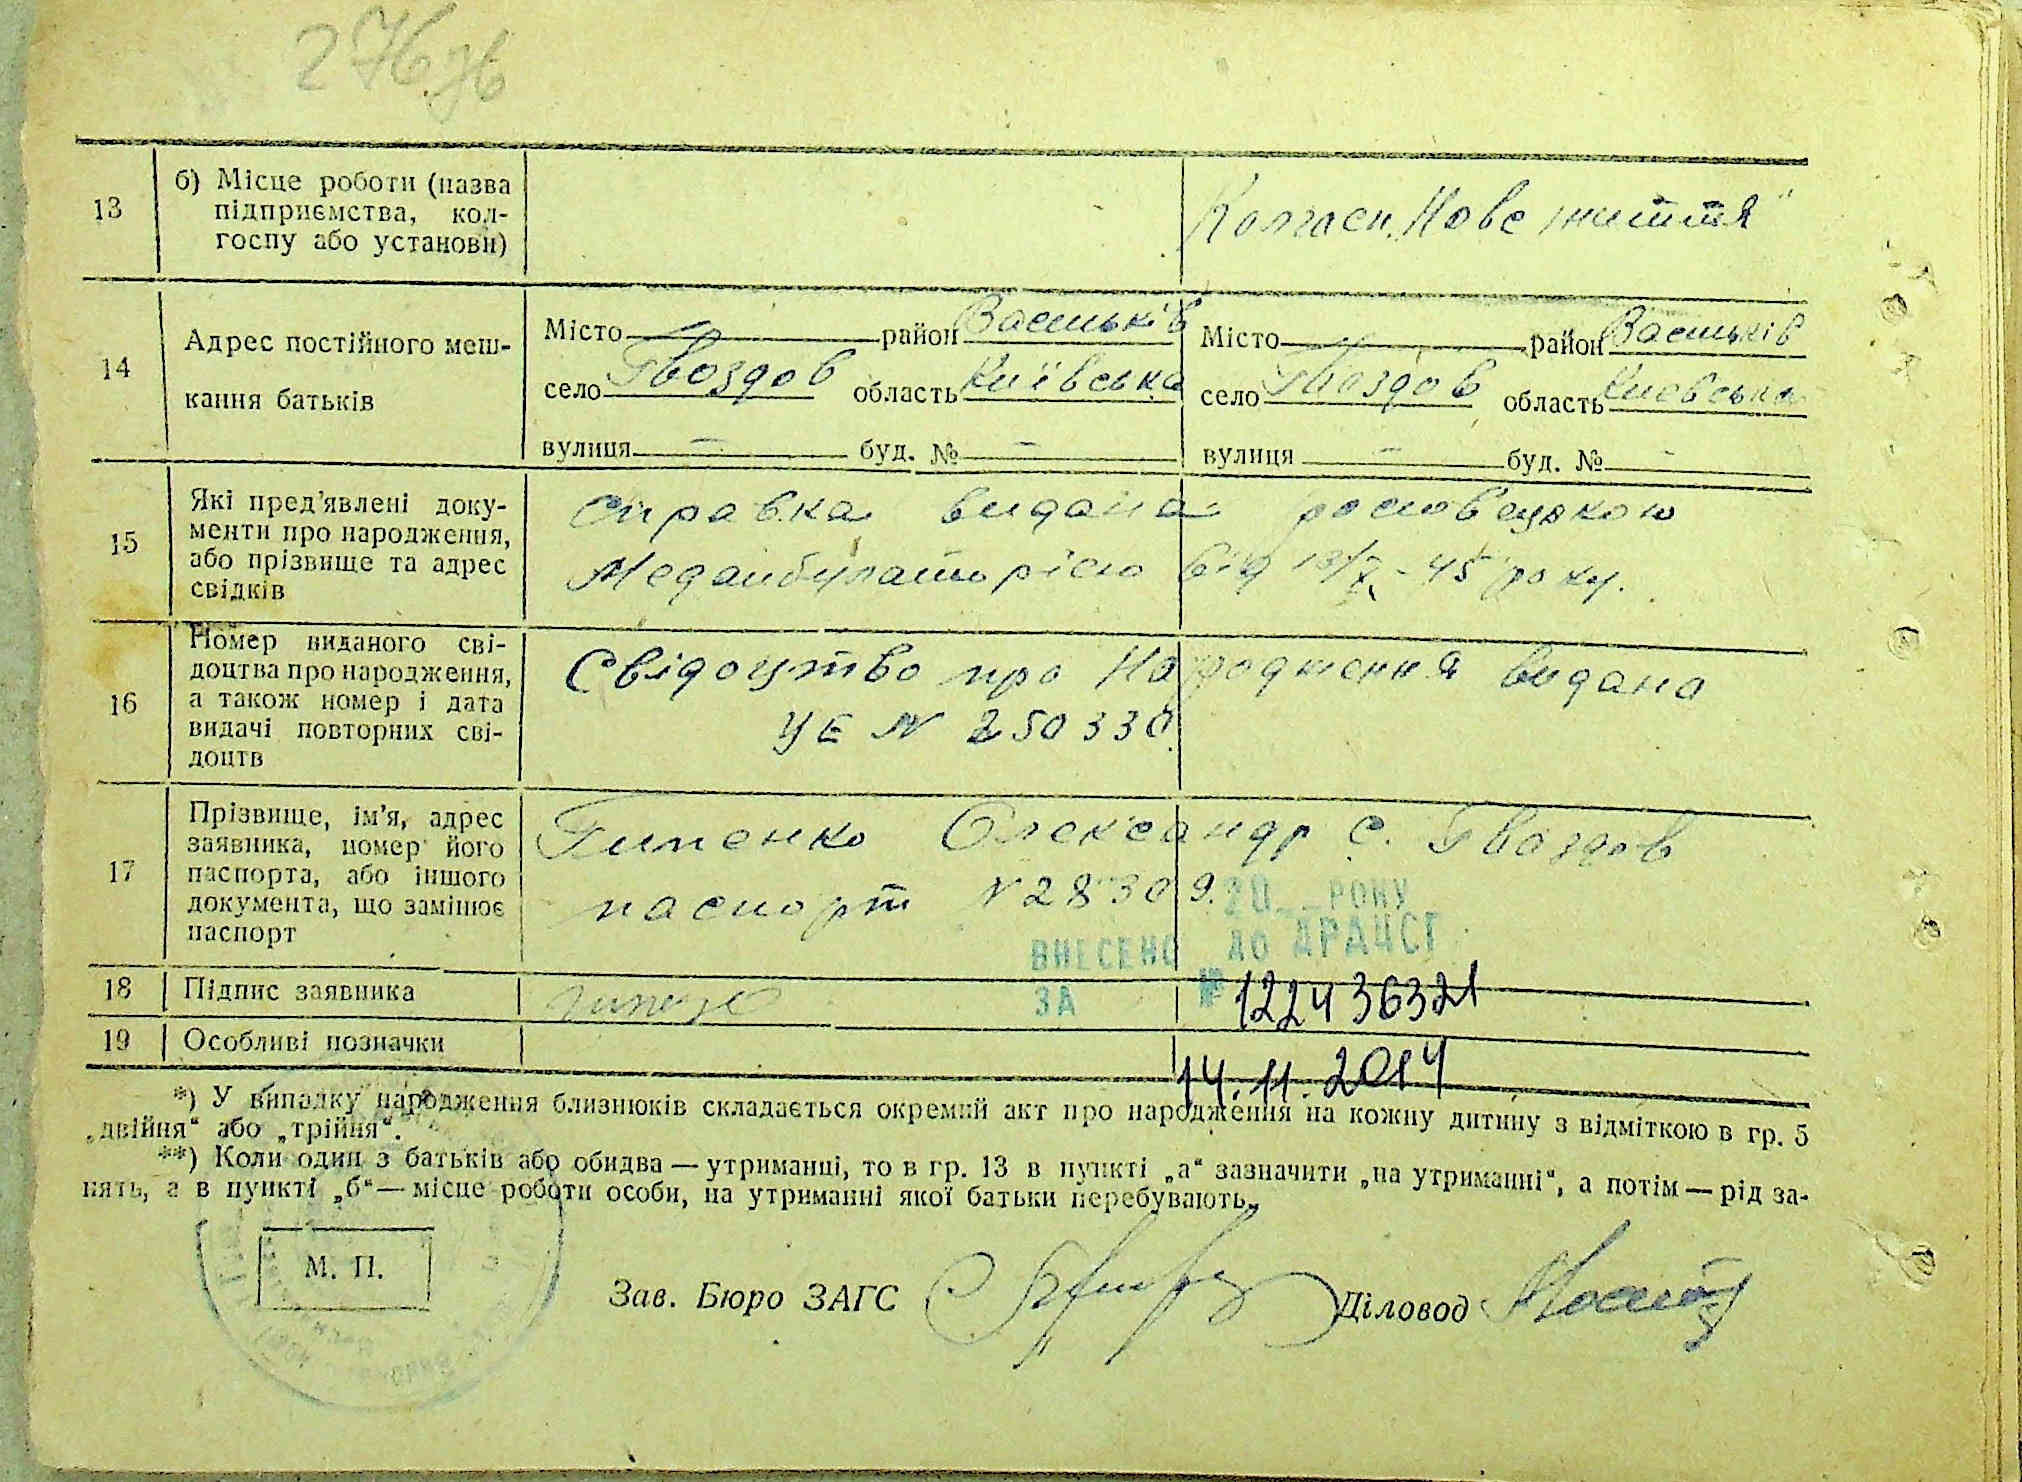 276 зв
13
б) Місце роботи (назва
підприємства, кол-
госпу або установи)
Колгосп „Нове життя"
14
Адрес постійного меш-
кання батьків
Місто — район Васильків
село Гвоздов область Київська
вулиця — буд. № —
Місто — район Васильків
село Гвоздов область Киевська
вулиця — буд. № -
15
Які пред'явлені доку-
менти про народження,
або прізвище та адрес
свідків
Справка видана
Медамбулаторією від 13/X - 45 року.
16
Номер виданого сві-
доцтва про народження,
а також номер і дата
видачі повторних сві-
доцтв
Свідоцтво про народження видано
УЕ N 250330
17
Прізвище, ім'я, адрес
заявника, номер його
паспорта, або іншого
документа, що замінює
паспорт
Гипенко Олександр с. Гвоздов
паспорт N 28309.
20 РОКУ
ВНЕСЕНО ДО ДРАЦСГ
ЗА № 122436321
14.11.2014
18
Підпис заявника
19
Особливі позначки
*) У випадку народження близнюків складається окремий акт про народження на кожну дитину з відміткою в гр. 5
„двійня" або „трійня".
**) Коли один з батьків або обидва — утриманці, то в гр. 13 в пункті „а" зазначити „на утриманні", а потім — рід за-
нять, а в пункті „б" — місце роботи особи, на утриманні якої батьки перебувають.
М. П.
Зав. Бюро ЗАГС
Діловод